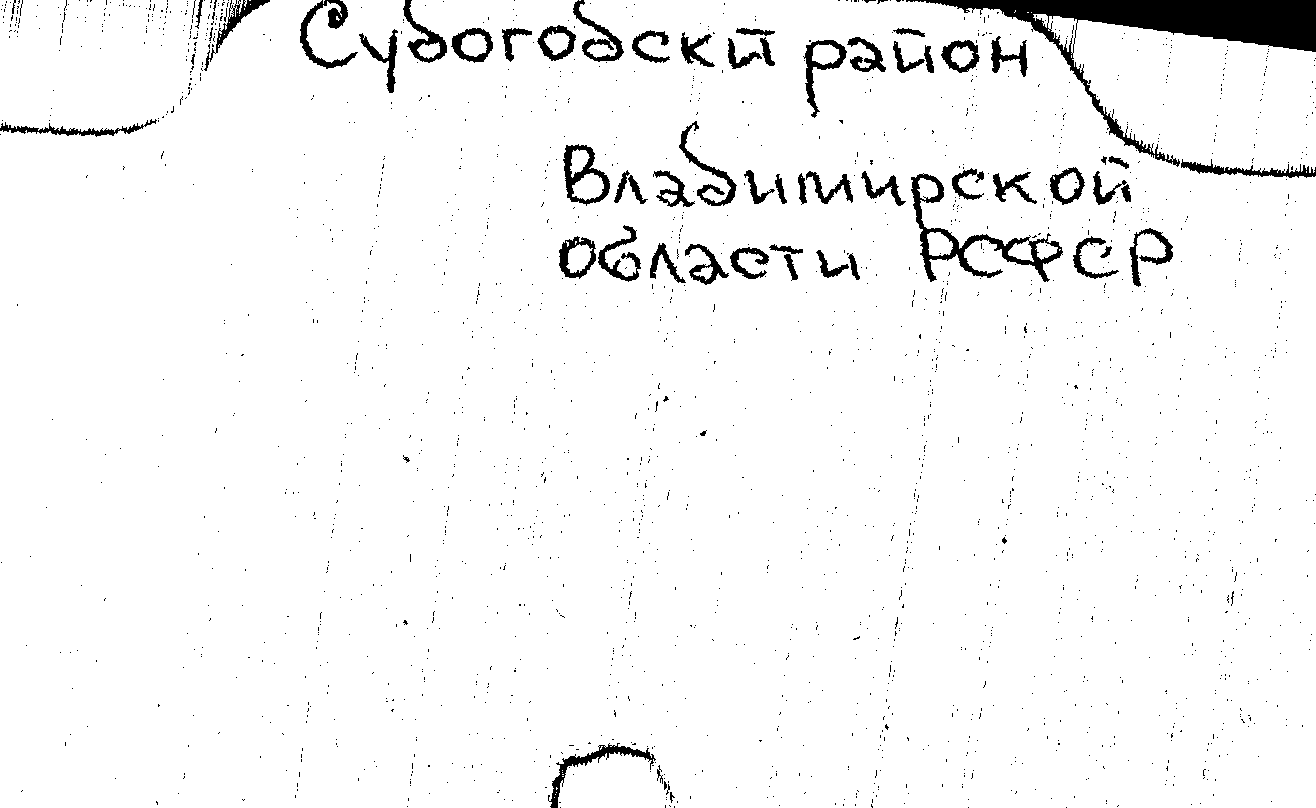 Судогодский район
Владимирской
области РСФСР